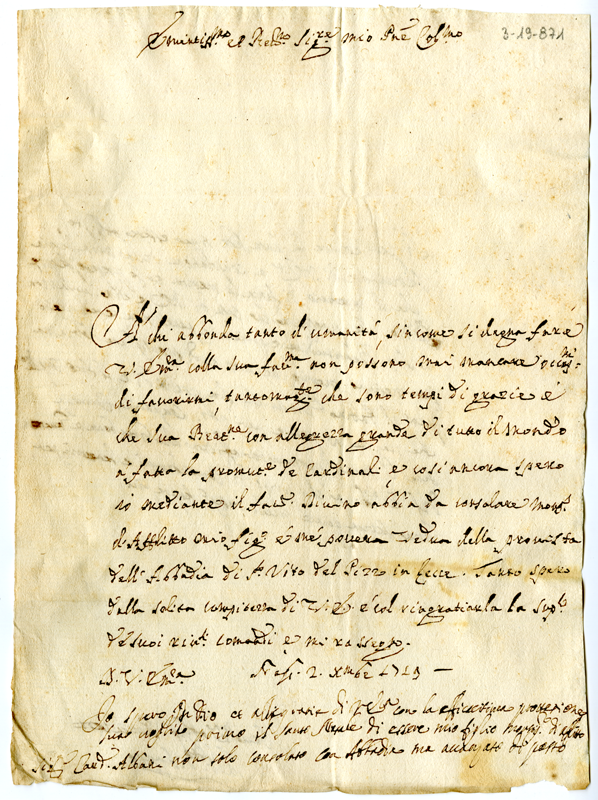 Eminentiss.mo et Re.mo Sig.re mio P.ne Col.mo
3-19-871
A' chi abbonda tanto di umanità, sincome si degna fare
V. Em.za colla sua fac.ma non possono mai mancare occas.ni
di favorirmi, tantomag.te che sono tempi di grazie è
che Sua Beat.ne con allegrezza grande di tutto il mondo
a fatto la promut.e de Cardinali, e così ancora spero
io mediante il Divino abbia da consolare Mons.
d'Afflitto mio fig.o è mé povera Vedua della provista
dell'Abbadia di S. Vito del Pizzo in Lecce. Tanto spero
dalla solita compitezza di V. E. è col ringratiarla la sup.co
de suoi riv.ti comandi è mi rassegno.
D. V. Em.za Nap. 2. Xmbre 1719 —
Io spero a Dio et alle gratie di V. E. con la efficacissima protezione
primo il Santo Natale di essere mio figlio Mons. d'Aflitto
Sig. Card. Albani non solo consolato con Abbadia ma di posto